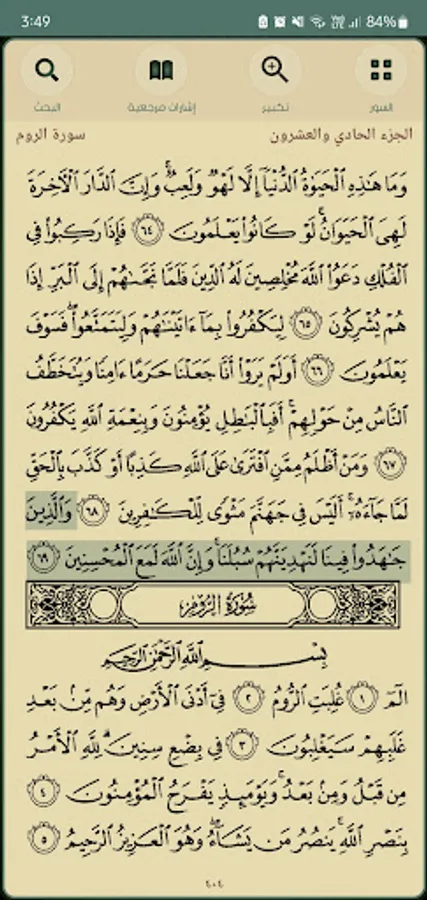 3:49 84%
السور تكبير إشارات مرجعية البحث
الجزء الحادي والعشرون سورة الروم
وَمَا هَٰذِهِ الْحَيَوٰةُ الدُّنْيَآ إِلَّا لَهْوٌ وَلَعِبٌ ۚ وَإِنَّ الدَّارَ الْآخِرَةَ
لَهِيَ الْحَيَوَانُ ۚ لَوْ كَانُوا۟ يَعْلَمُونَ ٦٤ فَإِذَا رَكِبُوا۟ فِي
الْفُلْكِ دَعَوُا۟ اللَّهَ مُخْلِصِينَ لَهُ الدِّينَ فَلَمَّا نَجَّىٰهُمْ إِلَى الْبَرِّ إِذَا
هُمْ يُشْرِكُونَ ٦٥ لِيَكْفُرُوا۟ بِمَآ ءَاتَيْنَٰهُمْ وَلِيَتَمَتَّعُوا۟ ۖ فَسَوْفَ
يَعْلَمُونَ ٦٦ أَوَلَمْ يَرَوْا۟ أَنَّا جَعَلْنَا حَرَمًا ءَامِنًا وَيُتَخَطَّفُ
النَّاسُ مِنْ حَوْلِهِمْ ۚ أَفَبِالْبَٰطِلِ يُؤْمِنُونَ وَبِنِعْمَةِ اللَّهِ يَكْفُرُونَ
٦٧ وَمَنْ أَظْلَمُ مِمَّنِ افْتَرَىٰ عَلَى اللَّهِ كَذِبًا أَوْ كَذَّبَ بِالْحَقِّ
لَمَّا جَآءَهُۥٓ ۚ أَلَيْسَ فِي جَهَنَّمَ مَثْوًى لِّلْكَٰفِرِينَ ٦٨ وَالَّذِينَ
جَٰهَدُوا۟ فِينَا لَنَهْدِيَنَّهُمْ سُبُلَنَا ۚ وَإِنَّ اللَّهَ لَمَعَ الْمُحْسِنِينَ ٦٩
سُورَةُ الرُّومِ
بِسْمِ اللَّهِ الرَّحْمَٰنِ الرَّحِيمِ
الٓمٓ ١ غُلِبَتِ الرُّومُ ٢ فِيٓ أَدْنَى الْأَرْضِ وَهُم مِّنۢ بَعْدِ
غَلَبِهِمْ سَيَغْلِبُونَ ٣ فِي بِضْعِ سِنِينَ ۗ لِلَّهِ الْأَمْرُ
مِن قَبْلُ وَمِنۢ بَعْدُ ۚ وَيَوْمَئِذٍ يَفْرَحُ الْمُؤْمِنُونَ ٤
بِنَصْرِ اللَّهِ ۚ يَنصُرُ مَن يَشَآءُ ۖ وَهُوَ الْعَزِيزُ الرَّحِيمُ ٥
٤٠٤